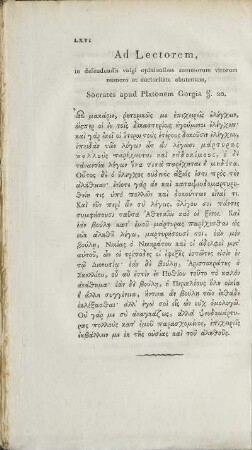 LXVI
Ad Lectorem,
in defendendis vulgi opinionibus summorum virorum
numero et auctoritate abutentem,
Socrates apud Platonem Gorgia §. 20.
Ὦ μακάριε, ῥητορικῶς με ἐπιχειρεῖς ἐλέγχειν,
ὥσπερ οἱ ἐν τοῖς δικαστηρίοις ἡγούμενοι ἐλέγχειν·
καὶ γὰρ ἐκεῖ οἱ ἕτεροι τοὺς ἑτέρους δοκοῦσιν ἐλέγχειν,
ἐπειδὰν τῶν λόγων ὧν ἂν λέγωσι μάρτυρας
πολλοὺς παρέχωνται καὶ εὐδοκίμους, ὁ δὲ
τἀναντία λέγων ἕνα τινὰ παρέχηται ἢ μηδένα.
Οὗτος δὲ ὁ ἔλεγχος οὐδενὸς ἄξιός ἐστι πρὸς τὴν
ἀλήθειαν· ἐνίοτε γὰρ ἂν καὶ καταψευδομαρτυρηθείη
τις ὑπὸ πολλῶν καὶ δοκούντων εἶναί τι.
Καὶ νῦν περὶ ὧν σὺ λέγεις, ὀλίγου σοι πάντες
συμφήσουσι ταῦτα Ἀθηναῖοι καὶ οἱ ξένοι. Καὶ
ἐὰν βούλῃ κατ' ἐμοῦ μάρτυρας παρέχεσθαι ὡς
οὐκ ἀληθῆ λέγω, μαρτυρήσουσί σοι, ἐὰν μὲν
βούλῃ, Νικίας ὁ Νικηράτου καὶ οἱ ἀδελφοὶ μετ'
αὐτοῦ, ὧν οἱ τρίποδες οἱ ἐφεξῆς ἑστῶτές εἰσιν ἐν
τῷ Διονυσίῳ· ἐὰν δὲ βούλῃ, Ἀριστοκράτης ὁ
Σκελλίου, οὗ αὖ ἐστὶν ἐν Πυθίου τοῦτο τὸ καλὸν
ἀνάθημα· ἐὰν δὲ βούλῃ, ἡ Περικλέους ὅλη οἰκία ἢ
ἄλλη συγγένεια, ἥντινα ἂν βούλῃ τῶν ἐνθάδε
ἐκλέξασθαι· ἀλλ' ἐγώ σοι εἷς ὢν οὐχ ὁμολογῶ.
Οὐ γάρ με σὺ ἀναγκάζεις, ἀλλὰ ψευδομάρτυρας
πολλοὺς κατ' ἐμοῦ παρασχόμενος, ἐπιχειρεῖς
ἐκβάλλειν με ἐκ τῆς οὐσίας καὶ τοῦ ἀληθοῦς.